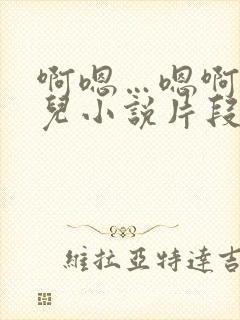 啊嗯…嗯啊
兒小說片段
維拉亞特達吉